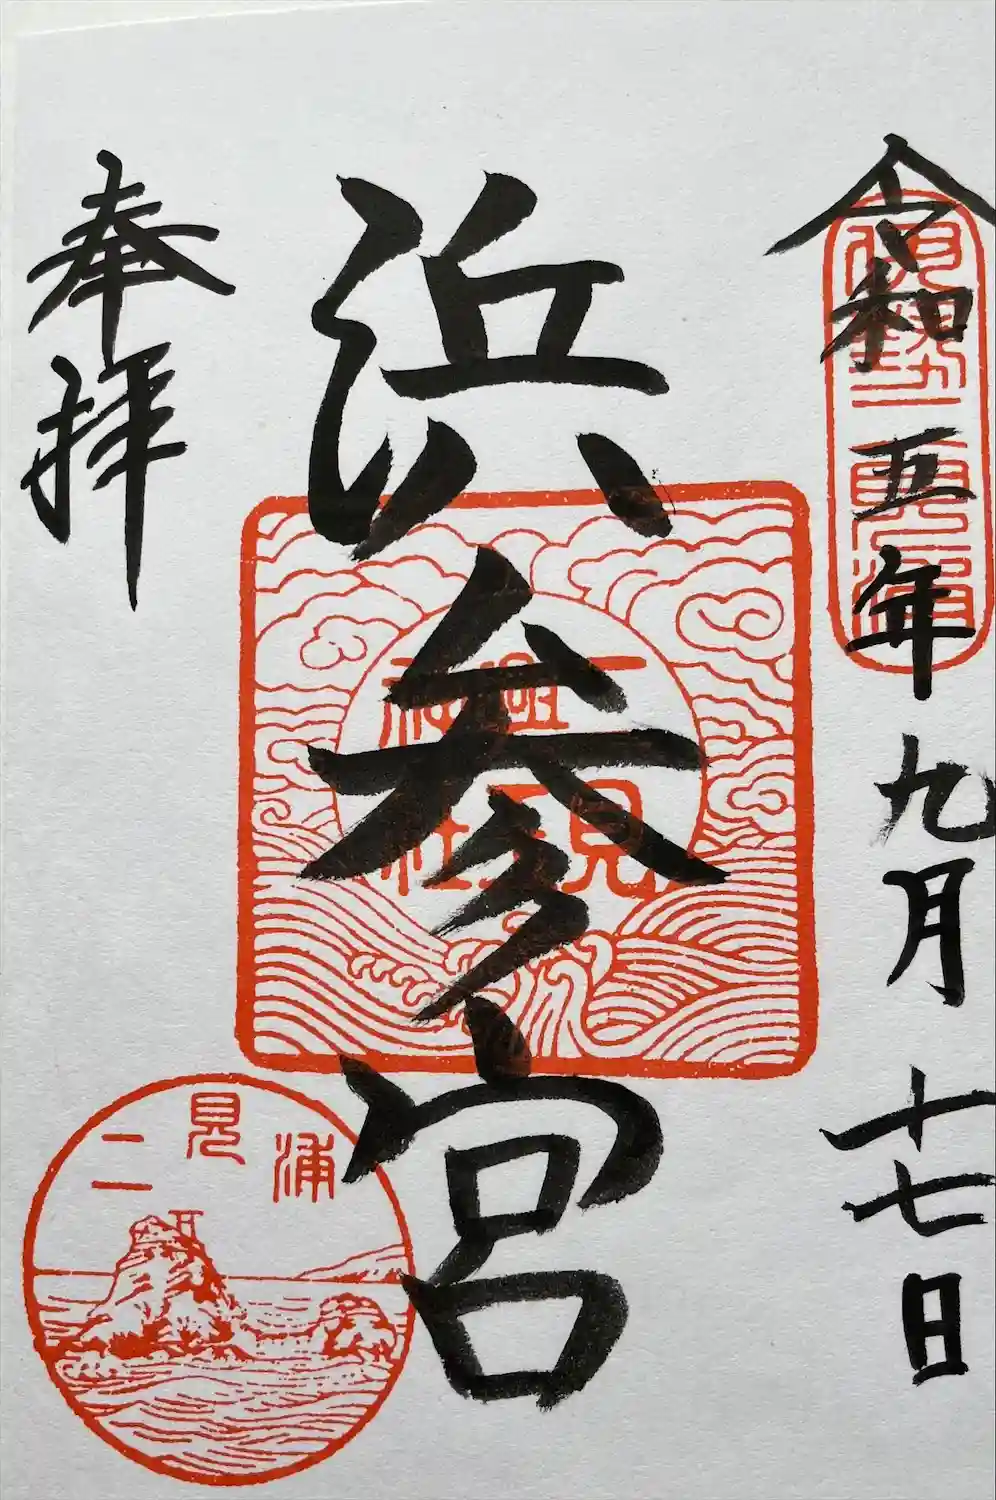 令和五年九月十七日
伊勢二見浦
浜参宮
二見興玉神社
奉拝
二見浦